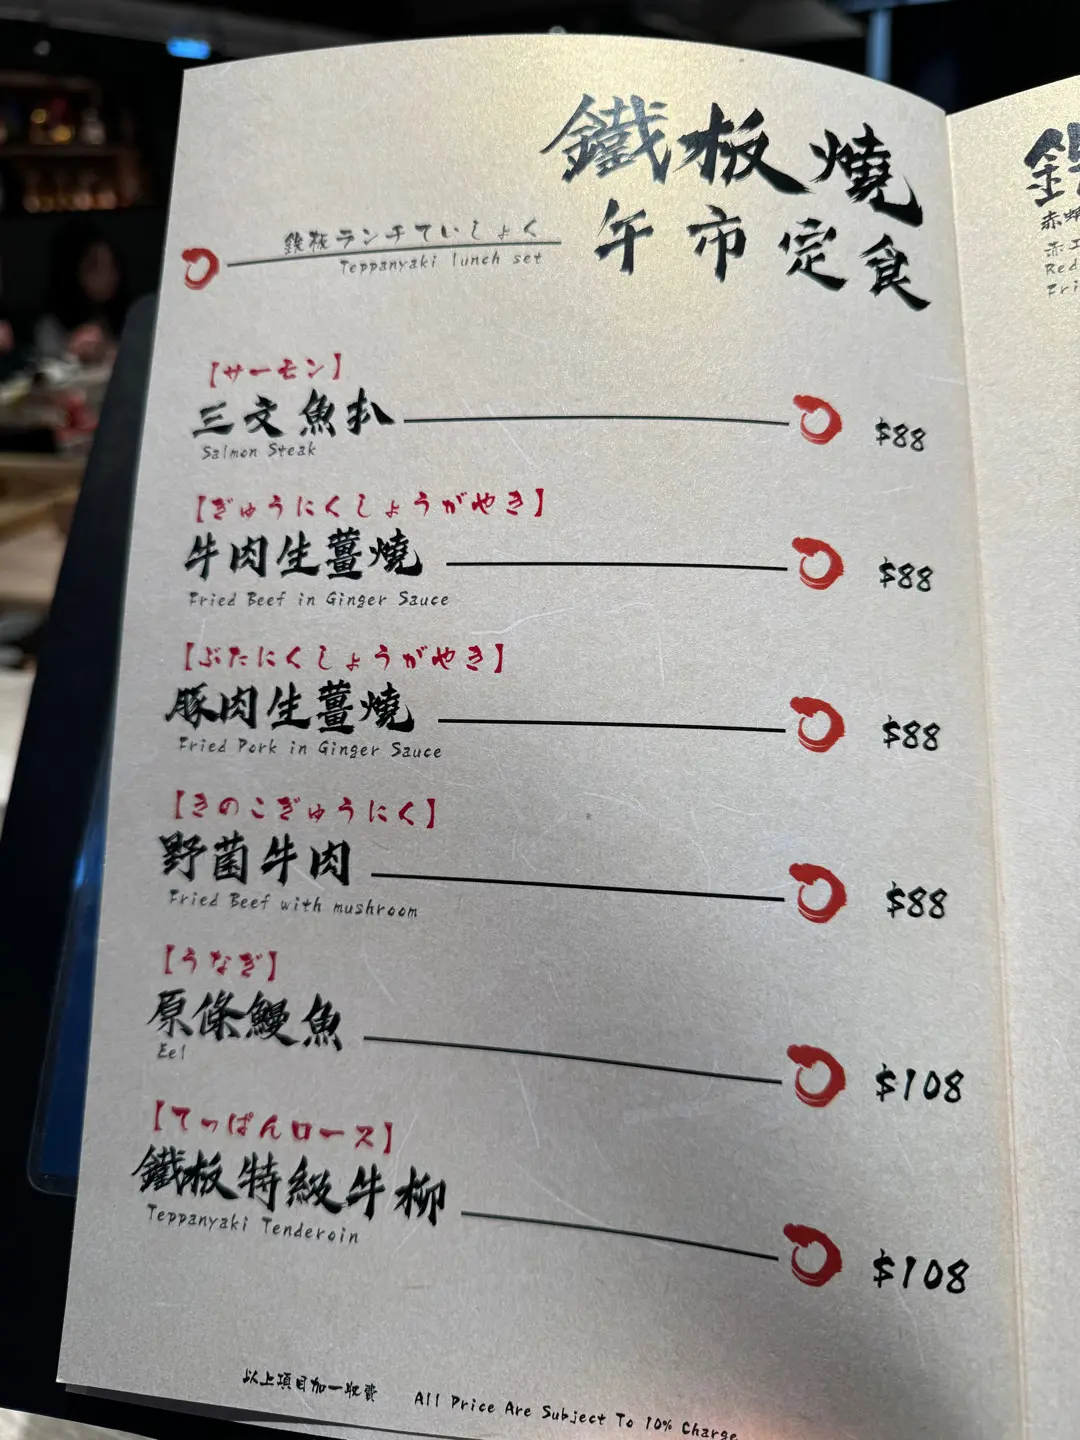 鐵板燒
午市定食
鉄板ランチていしょく
Teppanyaki lunch set
【サーモン】
三文魚扒
Salmon Steak
$88
【ぎゅうにくしょうがやき】
牛肉生薑燒
Fried Beef in Ginger Sauce
$88
【ぶたにくしょうがやき】
豚肉生薑燒
Fried Pork in Ginger Sauce
$88
【きのこぎゅうにく】
野菌牛肉
Fried Beef with mushroom
$88
【うなぎ】
原條鰻魚
Eel
$108
【てっぱんロース】
鐵板特級牛柳
Teppanyaki Tenderoin
$108
以上項目加一收費
All Price Are Subject To 10% Charge
Red
Fri